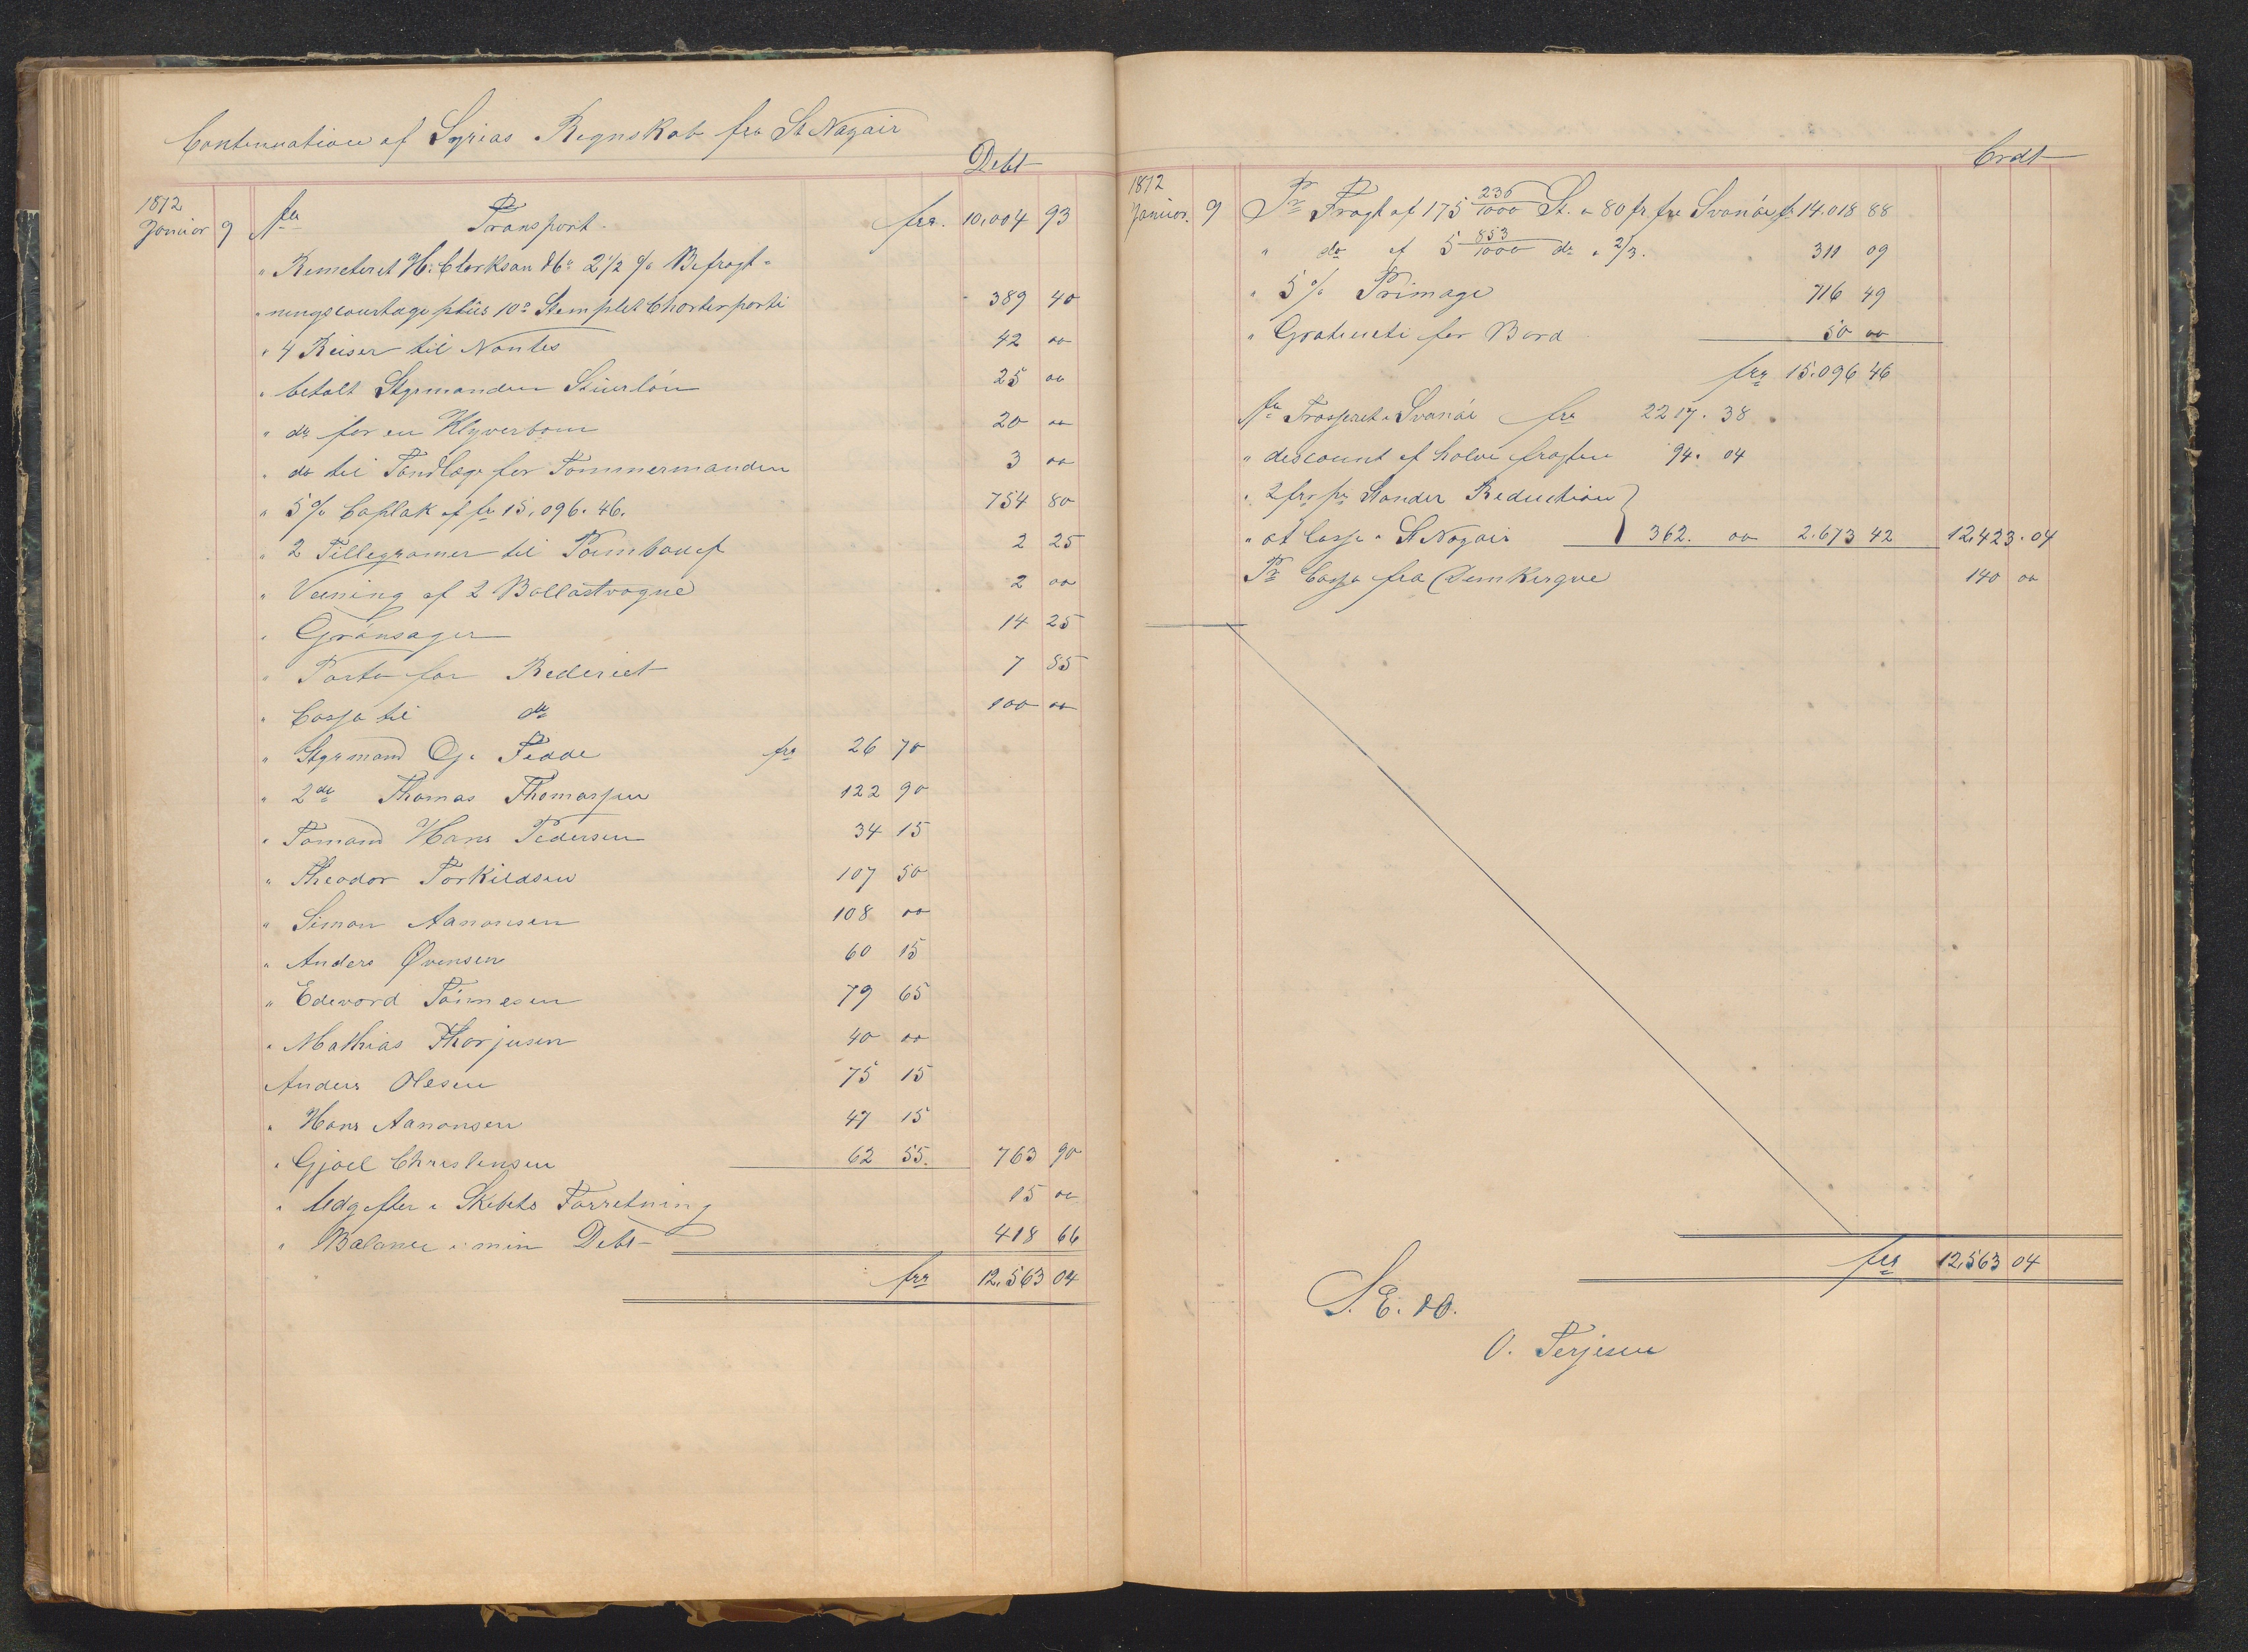 Continuation af Syrias Regnskab fra St Nazair
Debt
1872
Januar 9 fra Transport frs. 10,004 93
" Remeteret H. Clarkson & Co 2 1/2 % Befragt=
" ningscourtage pluis 10 c Stemplet Charterparti 389 40
" 4 Reiser til Nantes 42 00
" betalt Styrmanden Stuerlön 25 00
" do for en Klyverbom 20 00
" do til Tandlæge for Tömmermanden 3 00
" 5 % Caplak af frs 15,096. 46. 754 80
" 2 Tillegramer til Paimbouef 2 25
" Veining af 2 Ballastvogne 2 00
" Grönsager 14 25
" Porto for Rederiet 7 55
" Cassa til do 100 00
" Styrmand Oje Fedde frs 26 70
" 2de Thomas Thomassen 122 90
" Tömand Hans Pedersen 34 15
" Theodor Torkildsen 107 50
" Simon Aanonsen 108 00
" Anders Øvensen 60 15
" Edevard Tönnesen 79 65
" Mathias Thorjusen 40 00
Anders Olesen 75 15
" Hans Aanonsen 47 15
" Gjoel Christensen 62 55. 763 90
" Udgifter i Skibets Forretning 15 00
" Balance i min Debt 418 66
frs 12,563 04
Crdt
1872
Januar. 9 Pr Fragt af 175 236/1000 St. a 80 fr fra Svanöe fr 14.018 88
" do af 5 853/1000 do a 2/3. 311 09
" 5 % Primage 716 49
" Gratueti for Bord 50 00
frs 15.096 46
fra Trasseret i Svanöe frs 2217. 38
" descount af halve fragten 94. 04
" 2 frs pr Stander Reduction }
" at Cassa i St Nazair 362. 00 2.673 42 12,423. 04
Pr Cassa fra Dunkerque 140 00
frs 12,563 04
S. E. & O.
O. Terjesen